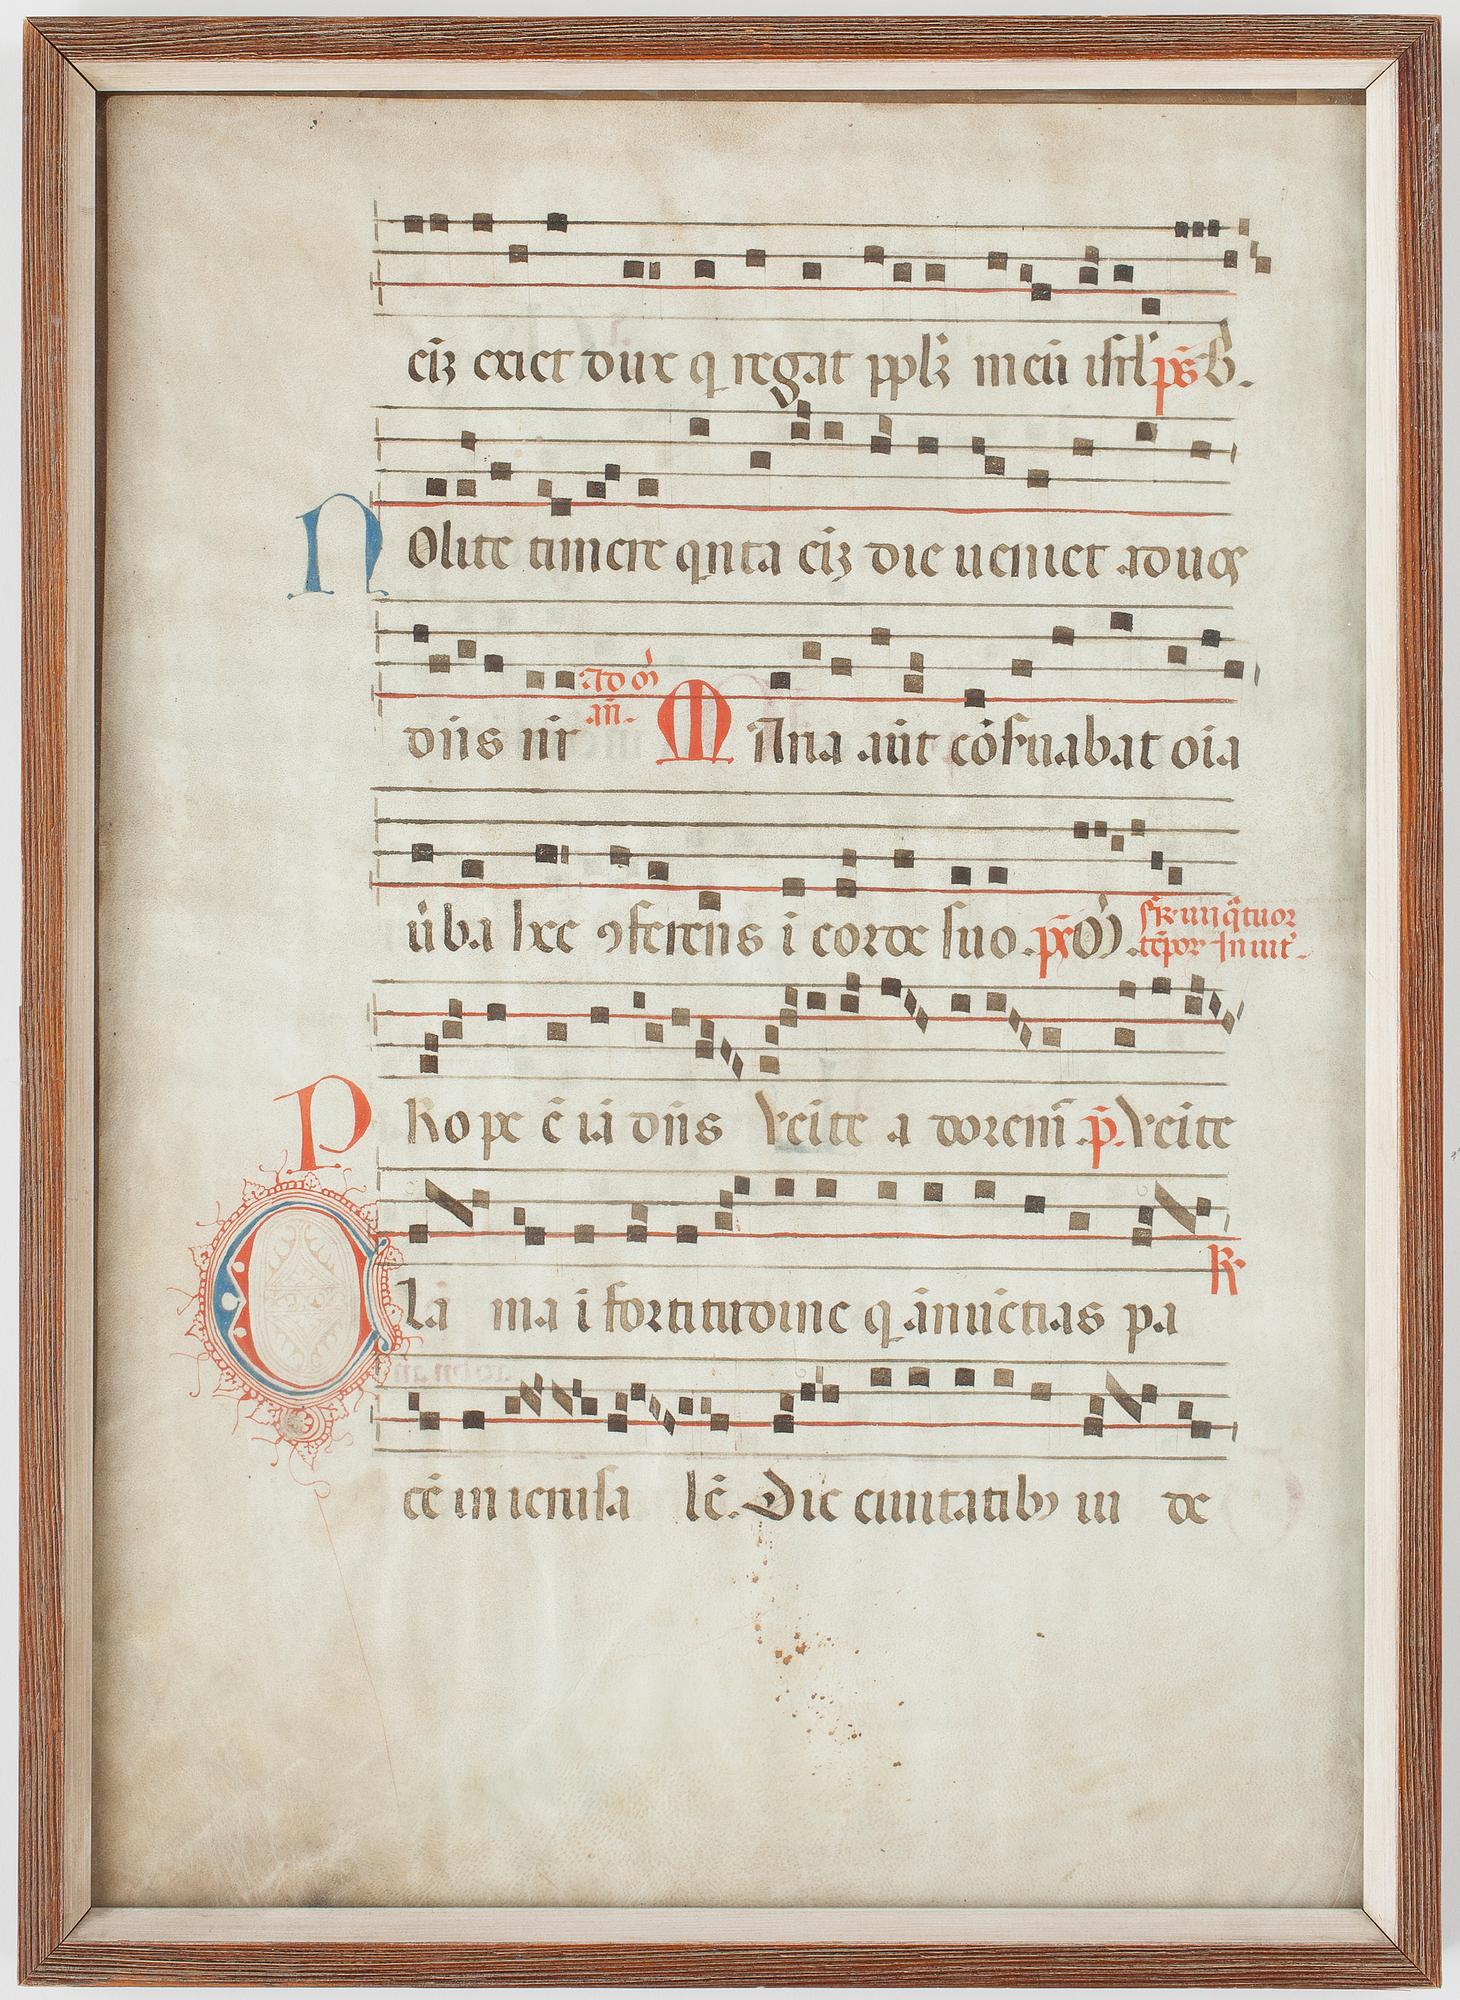 eiȝ exiet dux q regat pplȝ meū isrl' ps B.
Nolite timere qnta eiȝ die ueniet aduos
dn̄s nr̄ Ad M̄ an̄. Maria aūt cōſuabat oīa
ūba hec ꝯferens ī corde suo. ps M̄. fr̄ iiii q̄tuor
tēpor Inuit.
Prope ē iā dn̄s Veīte adorem̄ p̄. Veīte
R̄
Clama ī fortitudine q ānūctias pa
cē in ierusalē. Dic ciuitatibȝ iude